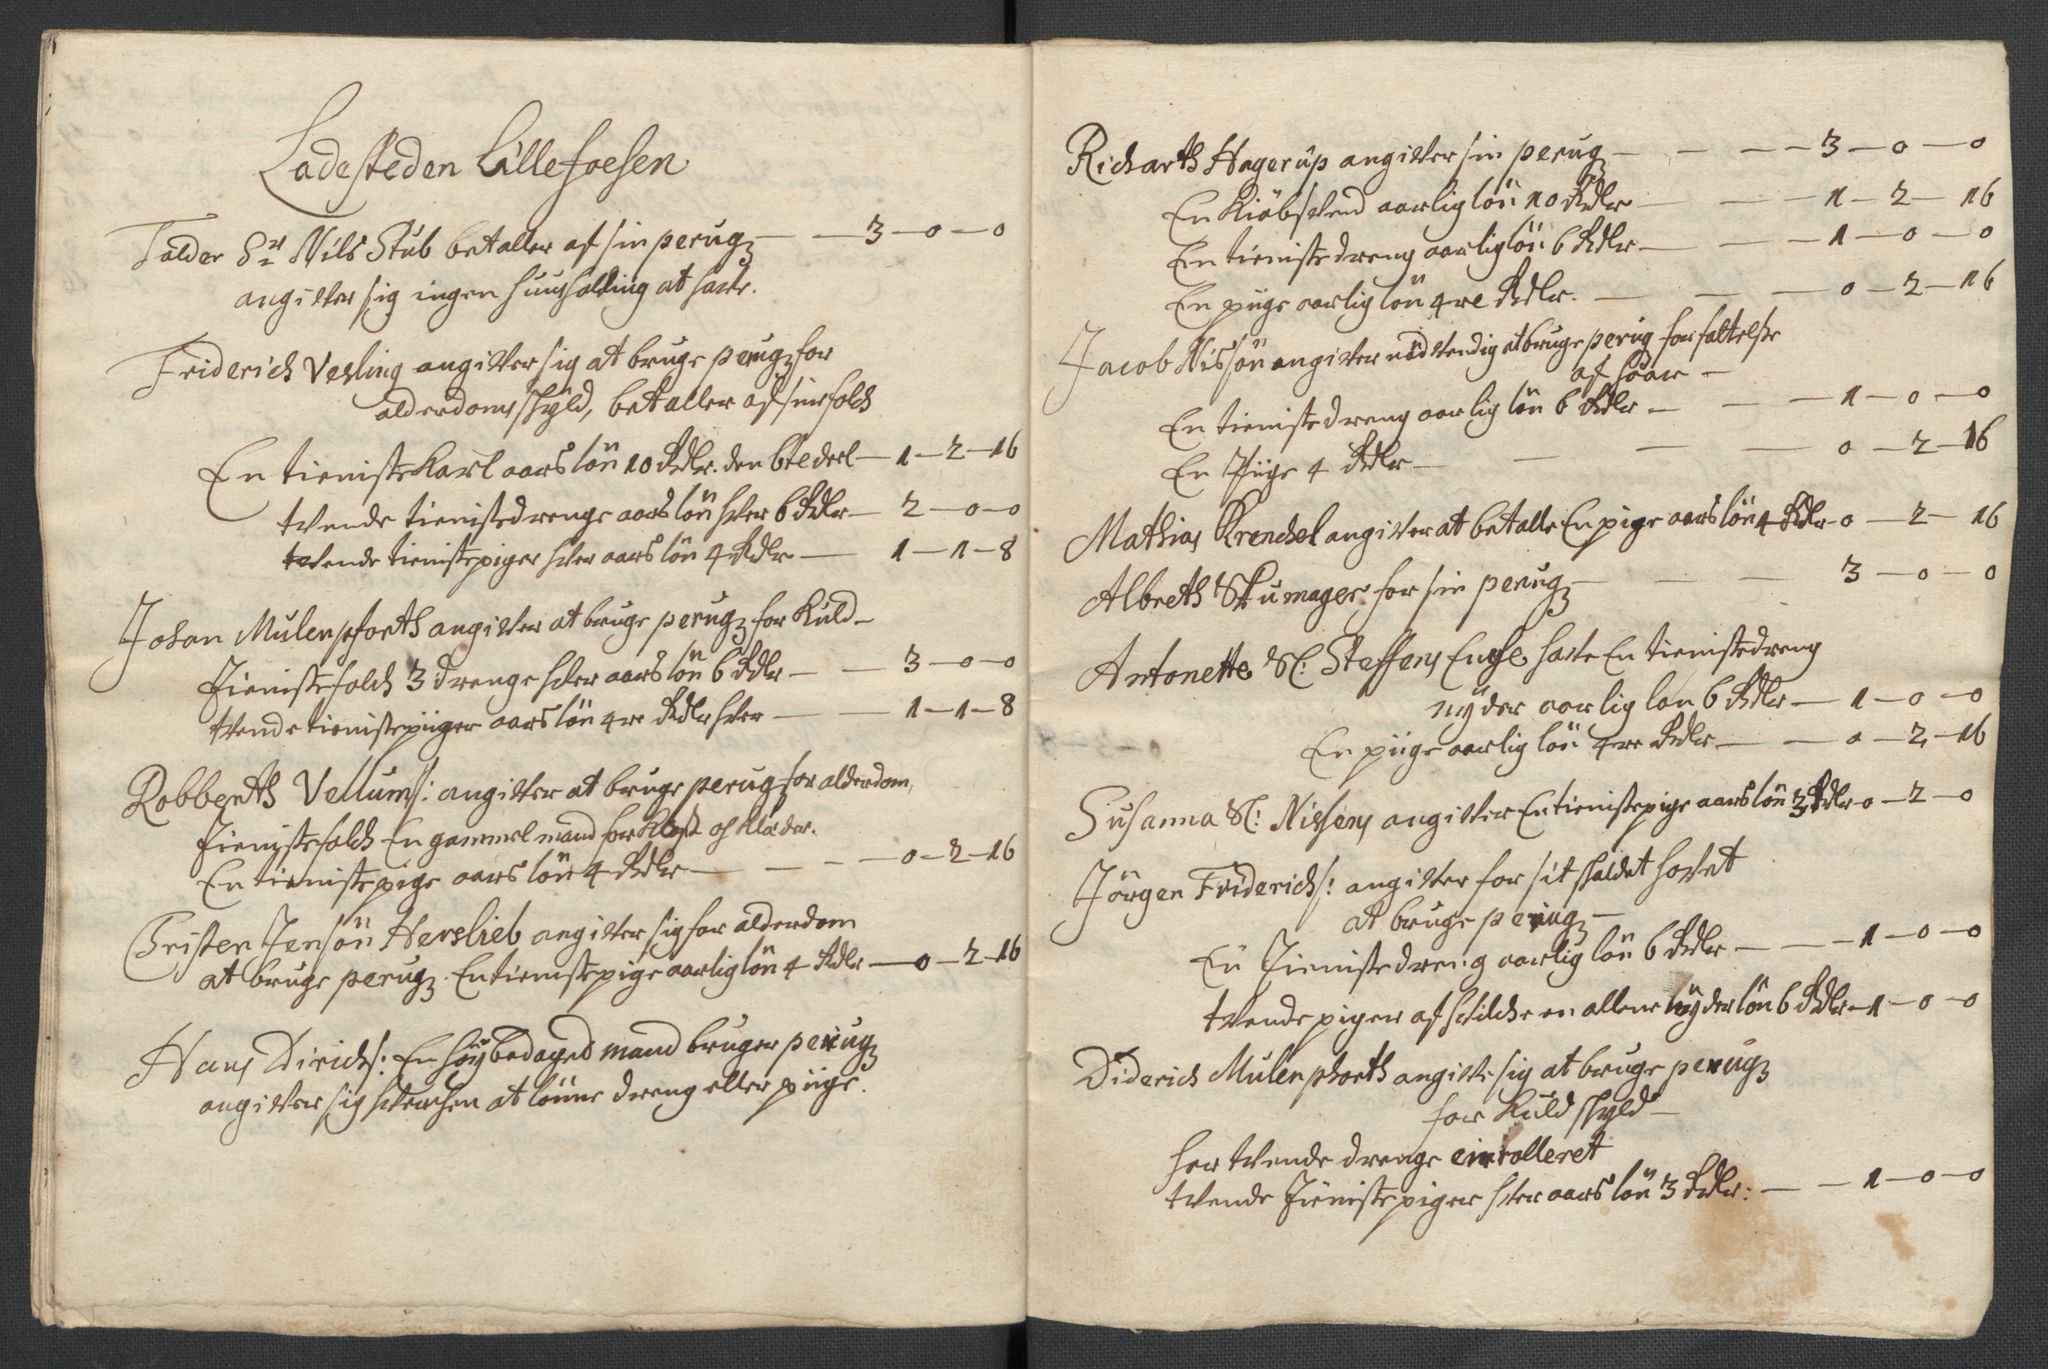 Ladesteden Lillefoesen
Tolder Sr Nils Stub betaller af sin perug — — 3 — 0 — 0
angifver sig ingen huusholding at hafve.
Friderich Vesling angifver sig at bruge perug for
alderdoms skyld, betaller af sine folch
En tieniste Karl aars lön 10 Rdlr. den 6te deel — 1 — 2 — 16
tvende tienistedrenge aars lön hver 6 Rdlr — 2 — 0 — 0
tvende tienistepiger hver aars lön 4 Rdlr — 1 — 1 — 8
Johan Mulenpforth angifver at bruge perug for Kuld —
Tieniste folch 3 drenge hver aars lön 6 Rdlr — — 3 — 0 — 0
tvende tienistepiiger aars lön 4re Rdlr hver — — 1 — 1 — 8
Robberth Vellums: angifver at bruge perug for alderdom,
Tienistefolch En gammel mand for Kost og Klæder.
En tienistepige aars lön 4 Rdlr — — — 0 — 2 — 16
Christen Jensön Herslieb angifver sig for alderdom
at bruge perug. En tienistepige aarlig lön 4 Rdlr — 0 — 2 — 16
Hans Dirichs: En höybedaged mand bruger perug
angifver sig hverchen at lönne dreng eller piige.
Richarth Hagerup angifver sin perug — — — 3 — 0 — 0
En Kiöbsvend aarlig lön 10 Rdlr — — — 1 — 2 — 16
En tienistedreng aarlig lön 6 Rdlr — — — 1 — 0 — 0
En piige aarlig lön 4re Rdlr. — — — 0 — 2 — 16
Jacob Nissön angifver nödvendig at bruge perug for fattelse
af haar —
En tienistedreng aarlig lön 6 Rdlr — — — 1 — 0 — 0
En Piige 4 Rdlr — — — — 0 — 2 — 16
Mathias Krenchel angifver at betalle En pige aars lön 4 Rdlr — 0 — 2 — 16
Albreth Skumager for sin perug — — — 3 — 0 — 0
Antonette Sl: Steffens Enche hafve En tienistedreng
nÿder aarlig lön 6 Rdlr — 1 — 0 — 0
En piige aarlig lön 4re Rdlr — — 0 — 2 — 16
Susanna Sl: Nissens angifver En tienistepige aars lön 3 Rdlr 0 — 2 — 0
Jörgen Friderichs: angifver for sit skaldet hovet
at bruge perug —
En Tienistedreng aarlig lön 6 Rdlr — — — 1 — 0 — 0
tvende piger af hvilche en allene nÿder lön 6 Rdlr — 1 — 0 — 0
Diderich Mulenphorth angifve sig at bruge perug
for Kuld skyld —
har tvende drenge enrolleret
tvende Tienistepiger hver aars lön 3 Rdlr: — — 1 — 0 — 0